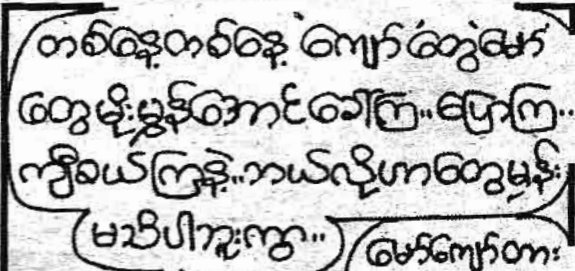 တစ်နေ့တစ်နေ့ ကျော်တွေမော်
တွေမိုးမွှန်အောင်ခေါ်ကြ..ပြောကြ..
ကျီစယ်ကြနဲ့..ဘယ်လိုဟာတွေမှန်း
မသိပါဘူးကွာ..
မော်ကျော်တား